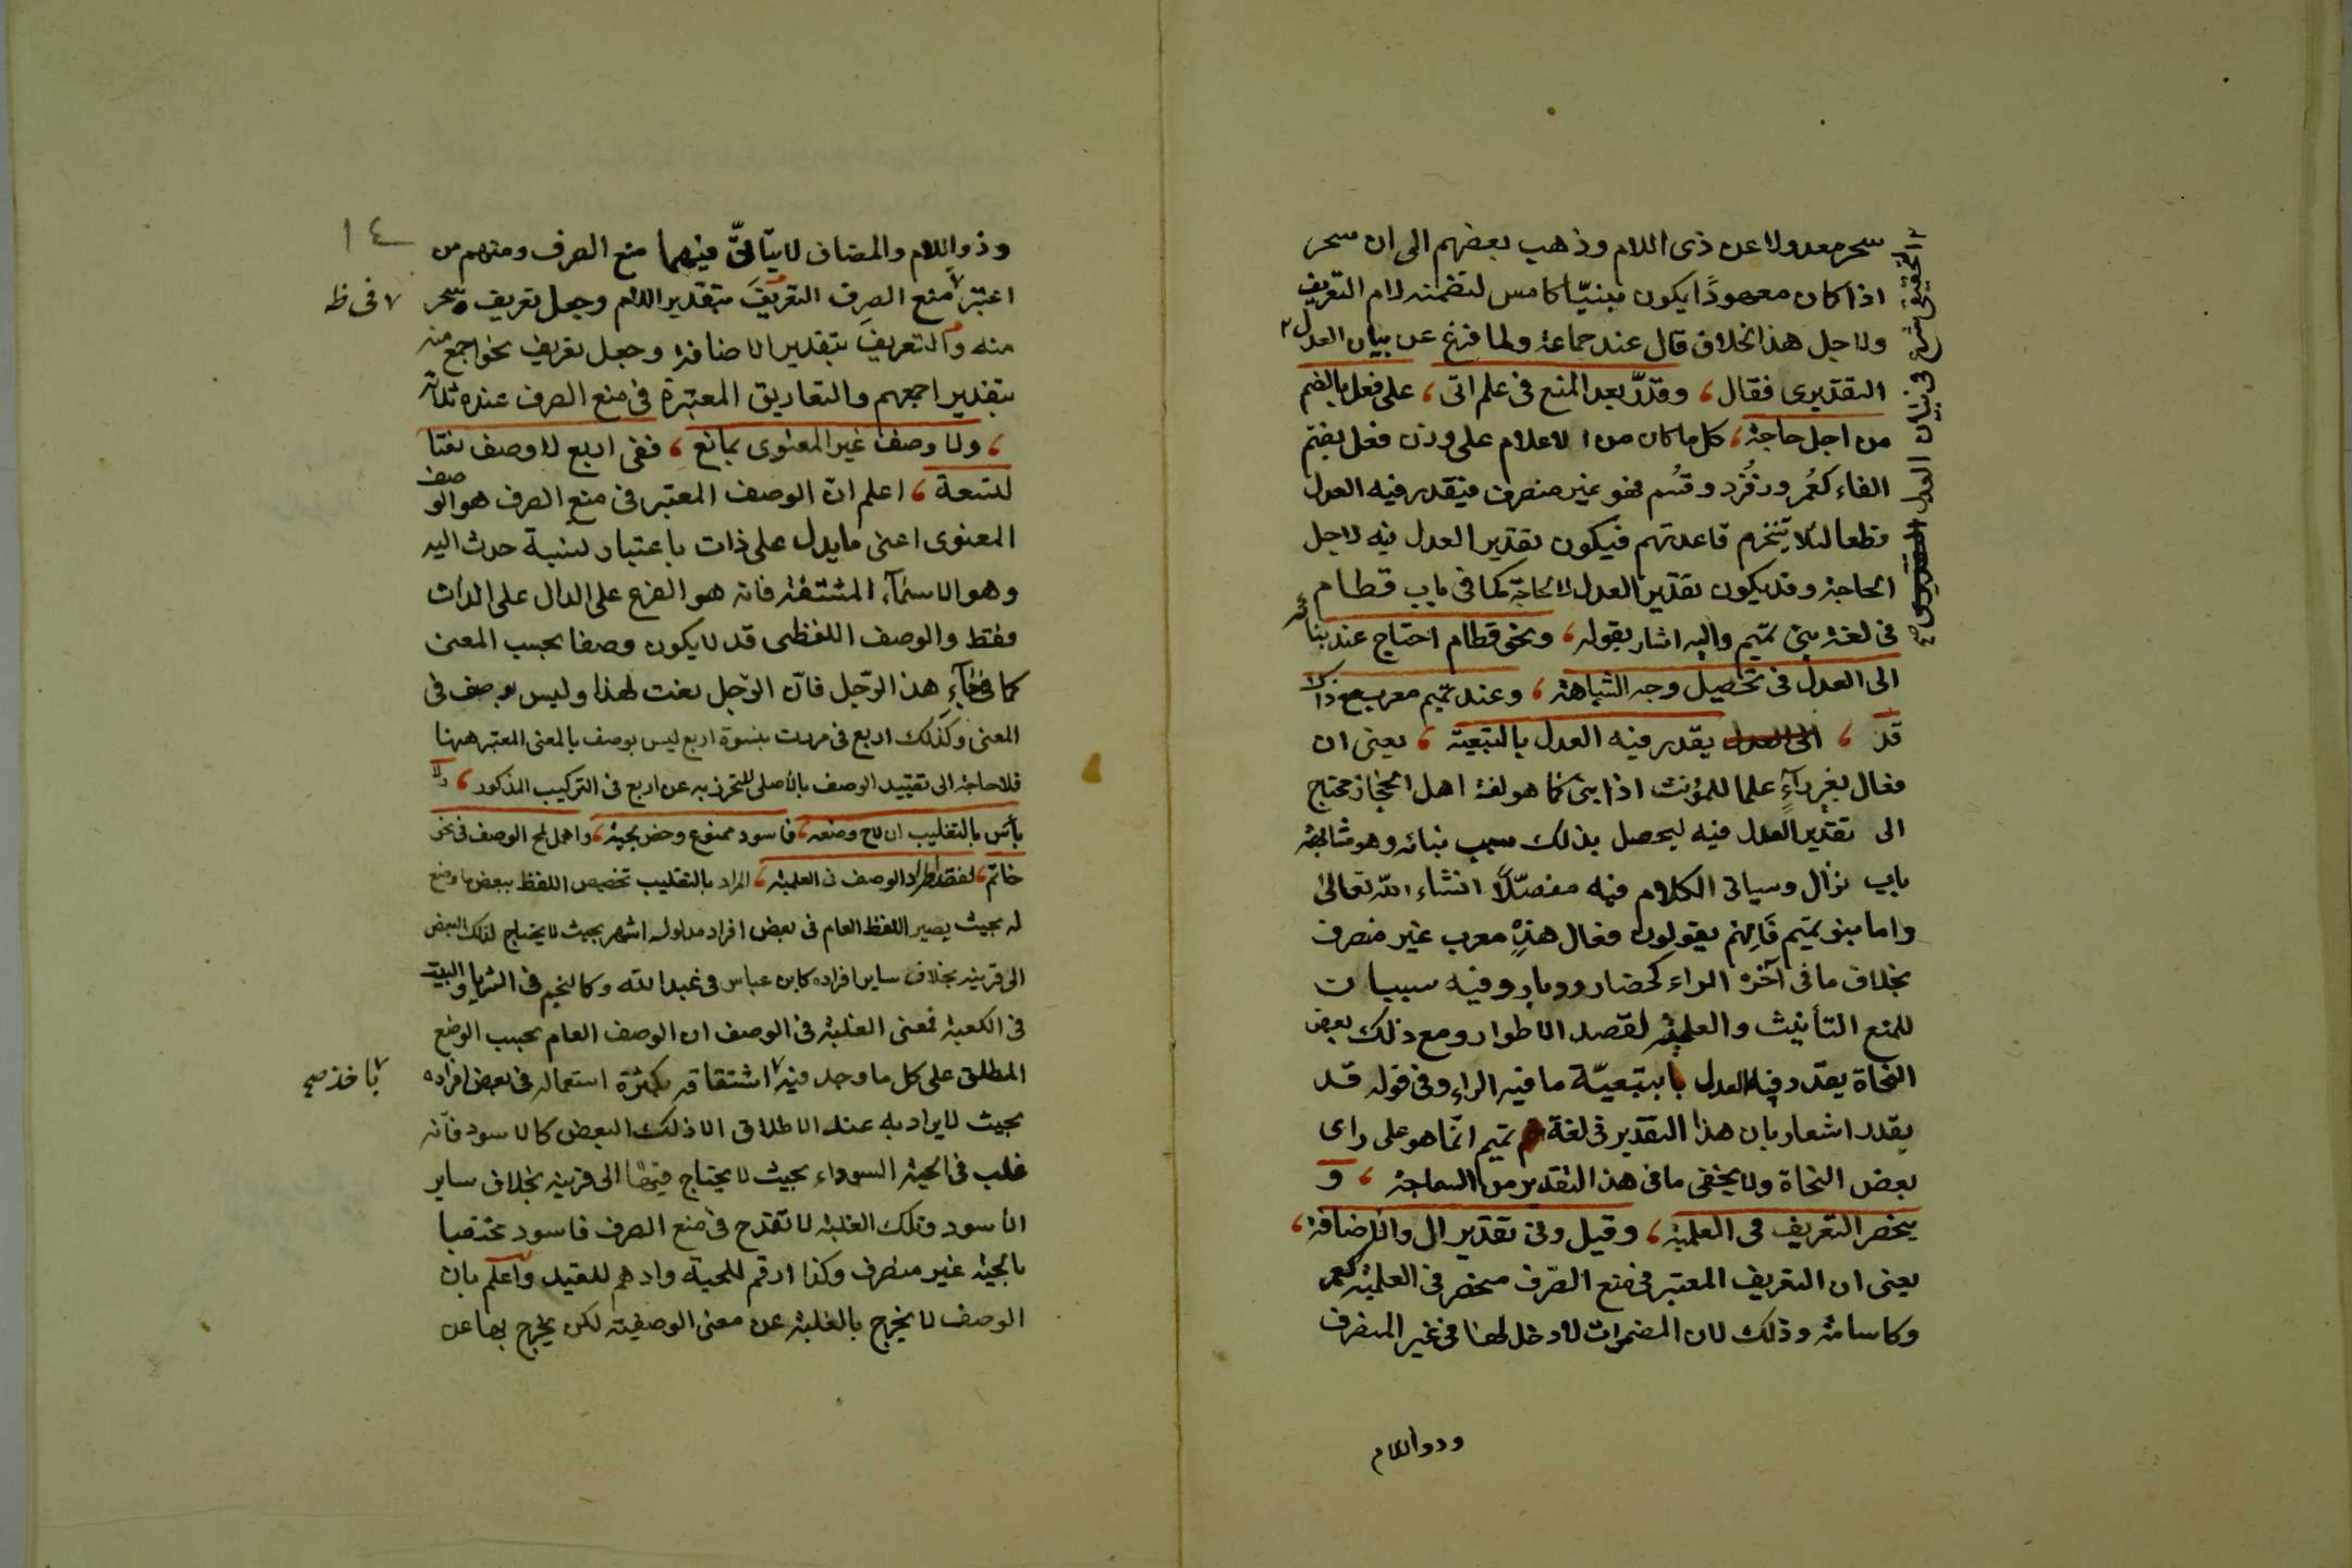 سحر معدولا عن ذى اللام وذهب بعضهم الى ان سحر
اذا كان معهودًا يكون مبنيّا كامس لتضمنه لام التعريف
ولاجل هذا الخلاف قال عند جماعة ولما فرغ عن بيان العدل
التقديرى فقال ، وقدّر بعد المنع فى علم اتى ، على فعل بالضم
من اجل حاجة ، كل ما كان من الاعلام على وزن فعل بضم
الفاء كعُمر وزُفر وقُثم فهو غير منصرف فيقدر فيه العدل
قطعا لئلا تنخرم قاعدتهم فيكون تقدير العدل فيه لاجل
الحاجة وقد يكون تقدير العدل لا لحاجة كما فى باب قطام
فى لغة بنى تميم واليه اشار بقوله ، ونحو قطام احتاج عند بنائه
الى العدل فى تحصيل وجه الشباهة ، وعند تميم معرب مع ذاك
قد ، يقدر فيه العدل بالتبعية ، يعنى ان
فعال بغير راءٍ علما للمؤنث اذا بنى كما هو لغة اهل الحجاز محتاج
الى تقدير العدل فيه ليحصل بذلك سبب بنائه وهو مشابهة
باب نزال وسياتى الكلام فيه مفصّلًا انشاء الله تعالى
واما بنو تميم فَاِنهم يقولون فعال هذهِ معرب غير منصرف
بخلاف ما فى آخره الراء كحضار ووبار وفيه سببان
للمنع التأنيث والعلمية لقصد الاطوار ومع ذلك بعض
النحاة يقدر فيه العدل بتبعيّة ما فيه الراء وفى قوله قد
يقدر اشعار بان هذا التقدير فى لغة تميم انما هو على راى
بعض النحاة ولا يخفى ما فى هذا التقدير من السماجة ، و
ينحصر التعريف فى العلمية ، وقيل وفى تقدير ال والاضافة ،
يعنى ان التعريف المعتبر فى منع الصّرف منحصر فى العلمية كعمر
وكاسامة وذلك لان المضمرات لا دخل لها فى غير المنصرف
وذو اللام
الحقيقى شرع فى بيان العدل
١٤
وذو اللام والمضاف لا يتأتىّ فيهما منع الصرف ومنهم من
اعتبر منع الصرف التعريفَ بتقدير اللام وجعل تعريف سحر
منه والتعريفَ بتقدير الاضافة وجعل تعريف نحو اجمع منه
بتقدير اجمعهم والتعاريف المعتبرة فى منع الصرف عنده ثلاثة
، ولا وصف غير المعنوى بمانع ، ففى اربع لا وصف نعتا
لنسعة ، اعلم ان الوصف المعتبر فى منع الصرف هو الوصف
المعنوى اعنى ما يدل على ذات باعتبار نسبة حدث اليه
وهو الاسمآء المشتقة فانه هو الفرع على الدال على الذات
فقط والوصف اللفظى قد لا يكون وصفا بحسب المعنى
كما فى جآء هذا الرّجل فانّ الرّجل نعت لهذا وليس بوصف فى
المعنى وكذلك اربع فى مررت بنسوة اربع ليس بوصف بالمعنى المعتبر ههنا
فلا حاجة الى تقييد الوصف بالأصلى للتحرز به عن اربع فى التركيب المذكور ، ولا
بأس بالتغليب ان لاح وضعه ، فاسود ممنوع وخص بحية ، واهمل لمح الوصف فى نحو
خاتم ، لفقد اطراد الوصف فى العلمية ، المراد بالتغليب تخصيص اللفظ ببعض ما وضع
له بحيث يصير اللفظ العام فى بعض افراد مدلوله اشهر بحيث لا يحتاج لذلك البعض
الى قرينة بخلاف ساير افراده كابن عباس فى عبد الله وكالنجم فى الثريا والبيت
فى الكعبة فمعنى الغلبة فى الوصف ان الوصف العام بحسب الوضع
المطلق على كل ما وجد فيه اشتقاقه بكثرة استعماله فى بعض افراده
بحيث لا يراد به عند الاطلاق الا ذلك البعض كالاسود فانه
غلب فى الحية السوداء بحيث لا يحتاج فيها الى قرينة بخلاف ساير
الأسود وتلك الغلبة لا تقدح فى منع الصرف فاسود مختصا
بالحية غير منصرف وكذا ارقم للحية وادهم للقيد واعلم بان
الوصف لا يخرج بالغلبة عن معنى الوصفية لكن يخرج بها عن
فى ظ
باخذ صح